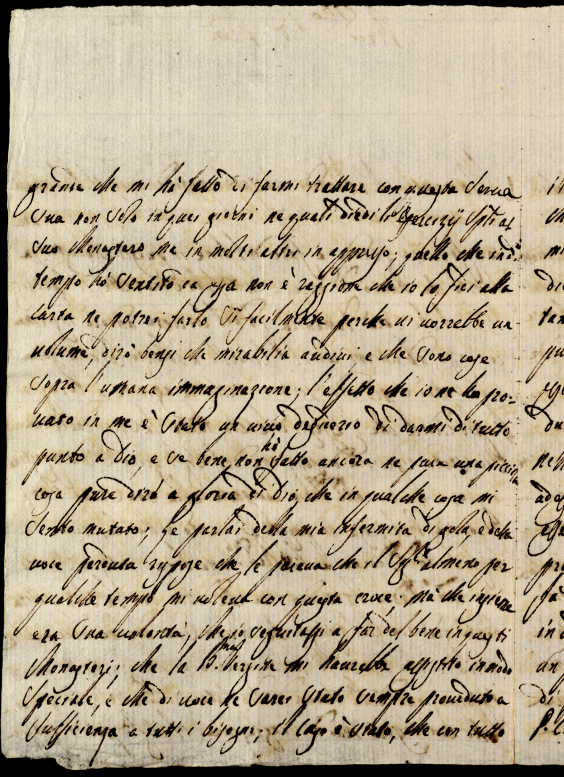 grazia che mi hà fatto di farmi trattare con questa Serva
Sua non solo in quei giorni ne quali diedi li Esercizij Spīl al
Suo Monastero ma in molti altri in appresso; quello che in di
tempo hò sentito da essa non è raggione che io lo fidi alla
carta ne potrei farlo sì facilmente perche vi vorrebbe un
volume, dirò bensi che mirabilia audivi e che sono cose
sopra l'umana immaginazione; l'effetto che io ne ho pro-
vato in me è stato un vivo desiderio di darmi di tutto
punto a Dio, e se bene non hò fatto ancora ne pure una piccola
cosa pure dirò a gloria di Dio, che in qualche cosa mi
sento mutato; Le parlai della mia infermita di gola e della
voce perduta rispose che le pareva che il Sigre almeno per
qualche tempo mi voleva con questa croce; mà che insieme
era sua volontà, che io seguitassi a far del bene in questi
Monasteri; che la B. Vergine mi haurebbe assistito in modo
speciale, e che di voce ne sarei stato sempre proveduto a
sufficienza a tutti i bisogni; il caso è stato, che con tutto